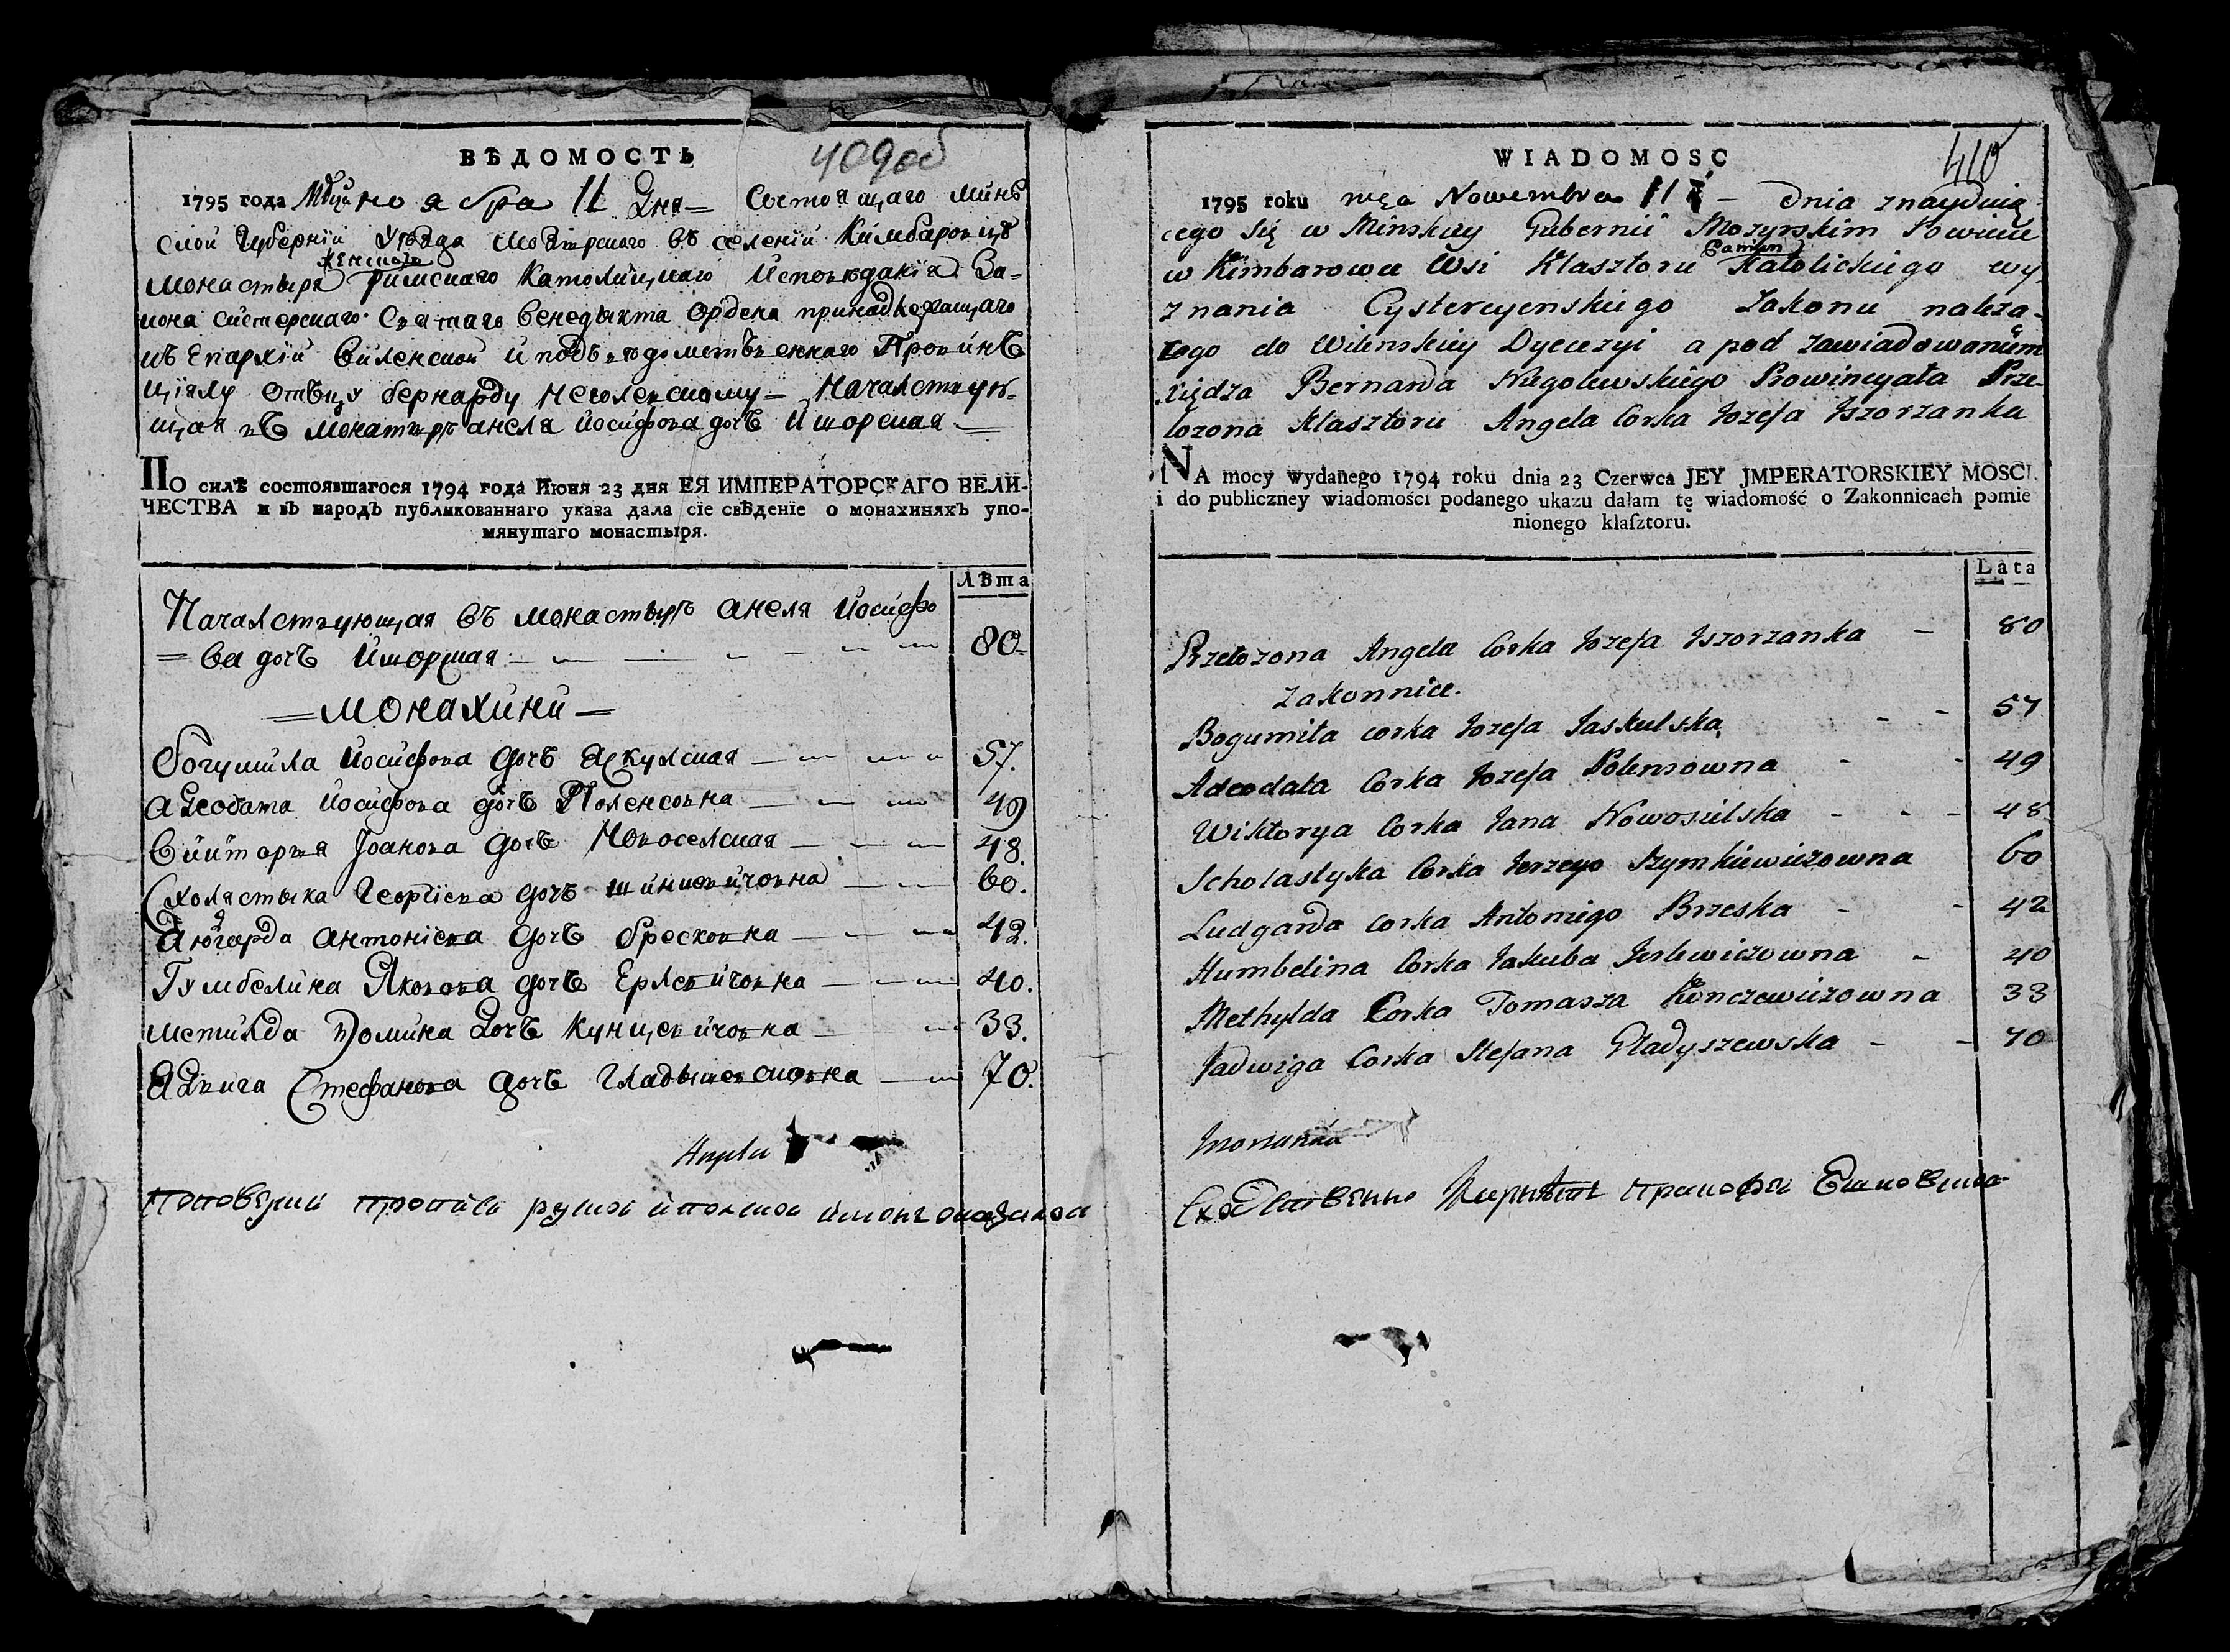 ВѢДОМОСТЬ
409об
1795 года Мсца ноября 11 дня = Состоящаго Минъ
ской Губерніи Уѣзда Мозырскаго въ селеніи Кимбаровцѣ
женскаго
монастыря Римскаго Католицкаго Исповѣданія За-
кона систерскаго Святаго Бенедыкта Ордена принадлежащаго
къ Епархіи Виленской и подъ вѣдомствъ еннаго Провинъ
ціялу отъцу бернарду Неголевскому = Началствую-
щая въ монастырѣ анеля иосифова дочъ Ишорская =
По силѣ состоявшагося 1794 года Июня 23 дня ЕЯ ИМПЕРАТОРСКАГО ВЕЛИ-
ЧЕСТВА и въ народъ публикованнаго указа дала сіе свѣденіе о монахиняхъ упо-
мянутаго монастыря.
Лѣта
Началствующая въ монастырѣ анеля Иосифо
= ва дочъ Ишорская — 80
= монахини =
богумила Иосифова дочъ Яскулская — 57.
адеодата Иосифова дочъ Поленсовна — 49
Викторыя Іоанова дочъ Новоселская — 48.
Схолястыка Георгіева дочъ шинкевичовна — 60.
Людгарда антоніева дочъ бресковна — 42.
Гумбелина Яковова дочъ Ерлевичовна — 40.
метилда Томина дочъ Кунцевичовна — 33.
ядвига Стефанова дочъ Гладышевсковна — 70.
Anјela
руской и полской
WIADOMOSC
410
1795 roku mca Nowembra 11 – dnia znayduią
cego się w Minskiey Gubernii Mozyrskim Powiecie
Pamien
w Kimbarowce Wsi Klasztoru Katolickiego wy
znania Cystercyenskiego Zakonu naleza-
cego do Wilenskiey Dyecezyi a pod zawiadowaniem
xiędza Bernarda Niegolewskiego Prowincyała Prze-
łozona Klasztoru Angela Corka Jozefa Iszorzanka
NA mocy wydanego 1794 roku dnia 23 Czerwca JEY JMPERATORSKIEY MOSCI.
i do publiczney wiadomości podanego ukazu dałam tę wiadomość o Zakonnicach pomie
nionego klasztoru.
Lata
Przełozona Angela Corka Jozefa Iszorzanka – 80
Zakonnice.
Bogumiła corka Jozefa Jaskulska – – 57
Adeodata Corka Jozefa Polensowna – – 49
Wiktorya Corka Jana Nowosielska – – – 48
Scholastyka Corka Jerzego Szymkiewiczowna 60
Ludgarda corka Antoniego Brzeska – – 42
Humbelina Corka Jakuba Jerlewiczowna – 40
Methylda Corka Tomasza Kunczewiczowna 33
Jadwiga Corka Stefana Gładyszewska – – 70